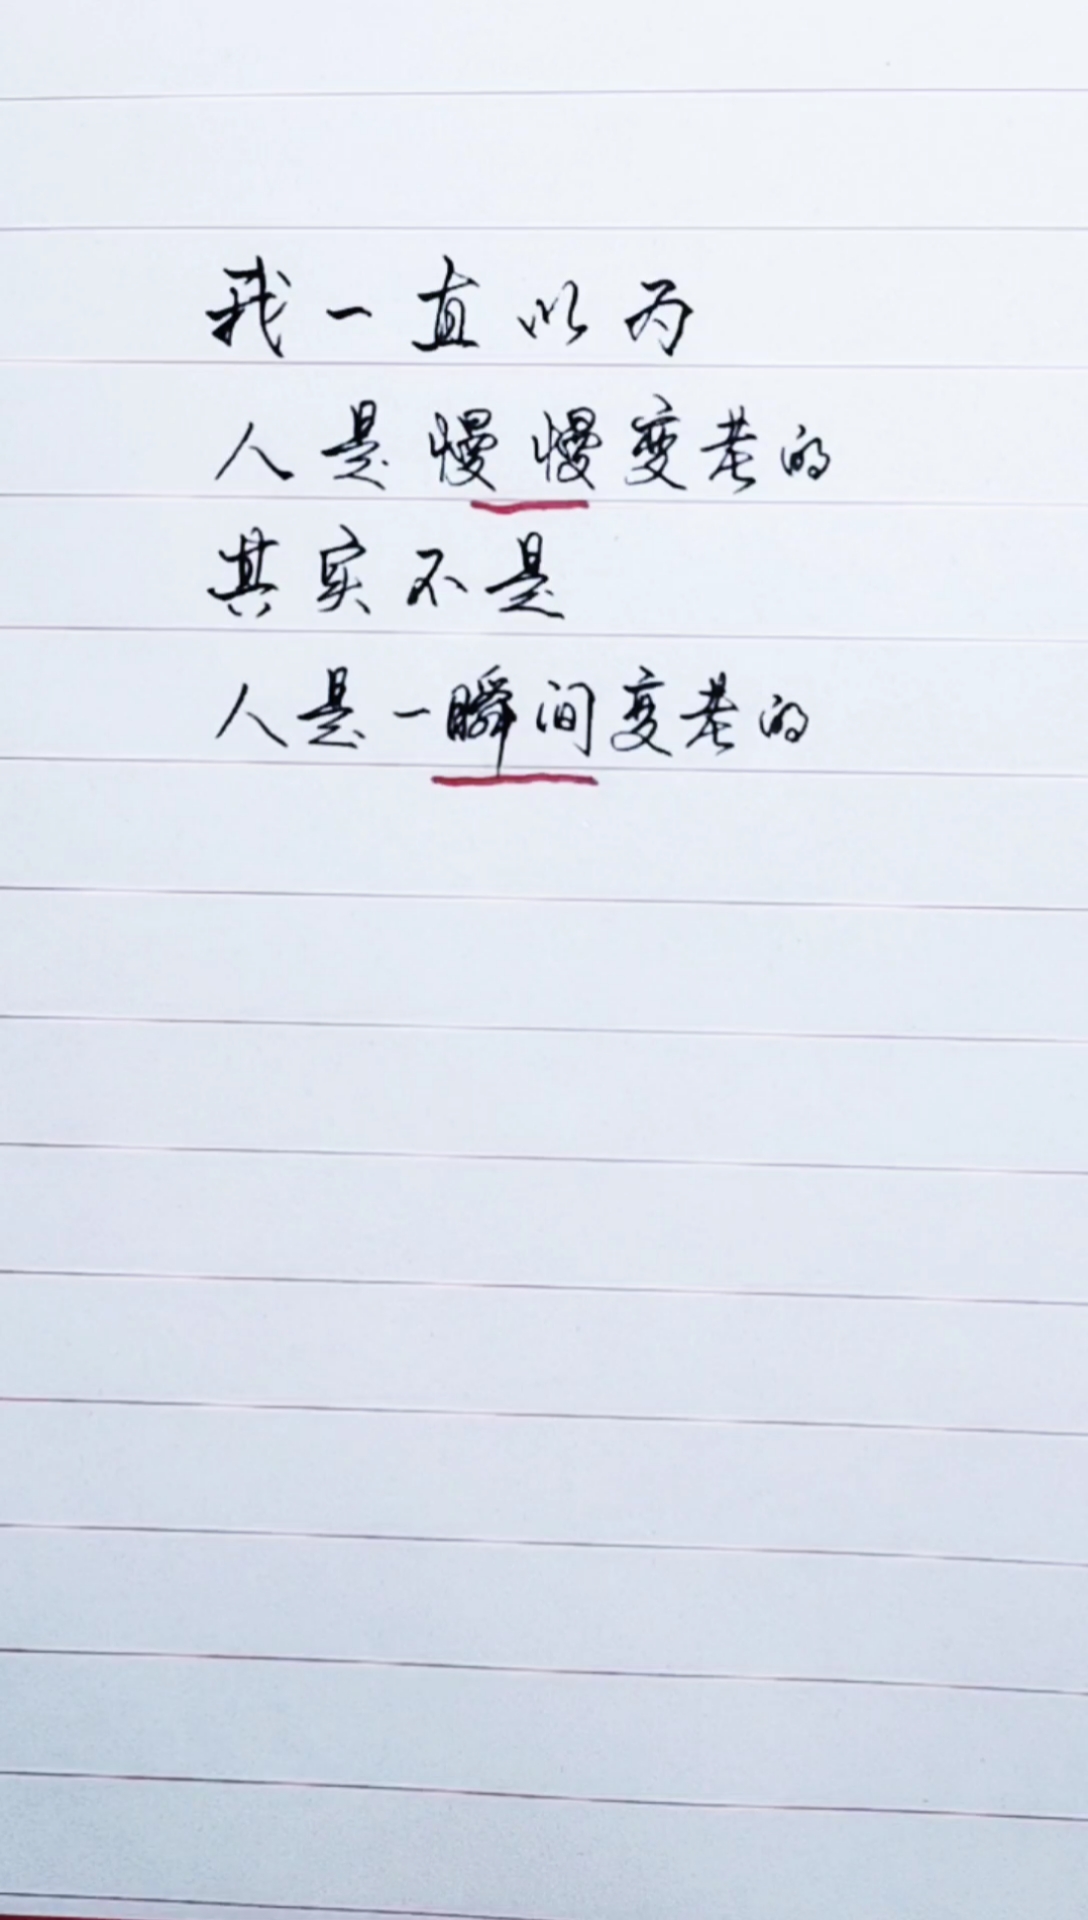 我一直以为
人是慢慢变老的
其实不是
人是一瞬间变老的